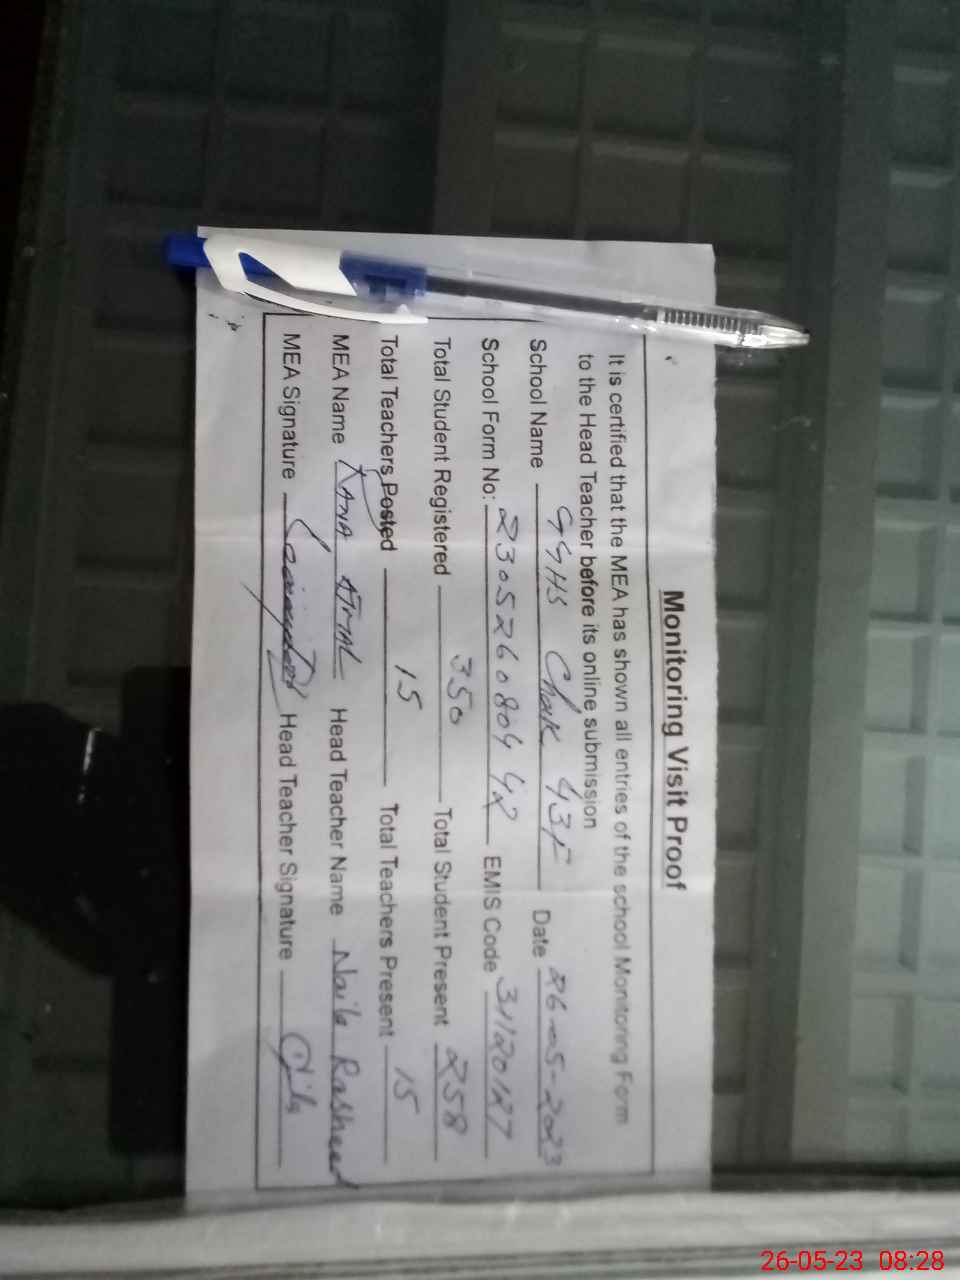 Monitoring Visit Proof
It is certified that the MEA has shown all entries of the school Monitoring Form
to the Head Teacher before its online submission
School Name GGHS Chak 43F Date 26-05-2023
School Form No: 230526080442 EMIS Code 31120127
Total Student Registered 350 Total Student Present 258
Total Teachers Posted 15 Total Teachers Present 15
MEA Name RANA Head Teacher Name Naila Rasheed
MEA Signature Head Teacher Signature
26-05-23 08:28